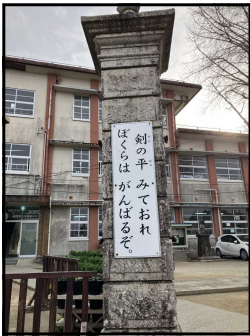 剣の平 みておれ
ぼくらは がんばるぞ。